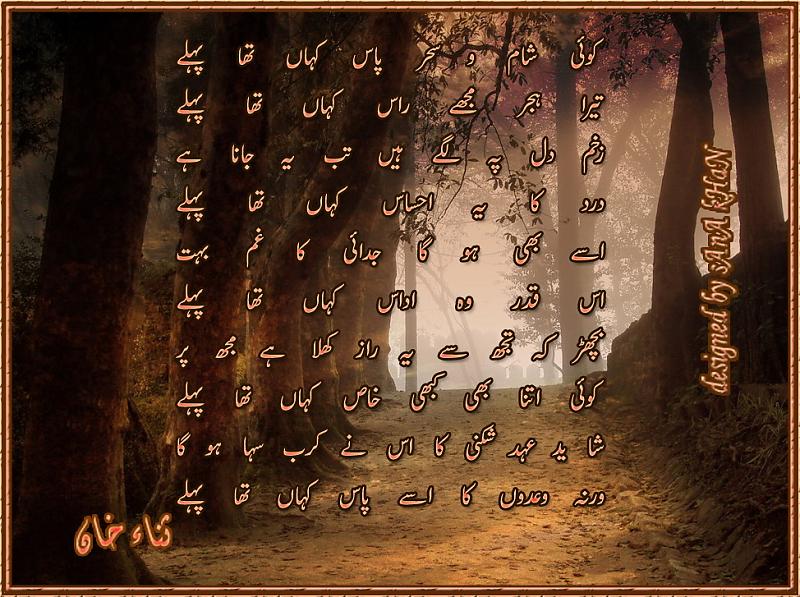 کوئی شام و سحر پاس کہاں تھا پہلے
تیرا ہجر مجھے راس کہاں تھا پہلے
زخم دل پہ لگے ہیں تب یہ جانا ہے
درد کا یہ احساس کہاں تھا پہلے
اسے بھی ہو گا جدائی کا غم بہت
اس قدر وہ اداس کہاں تھا پہلے
بچھڑ کہ تجھ سے یہ راز کھلا ہے مجھ پر
کوئی اتنا بھی کبھی خاص کہاں تھا پہلے
شا ید عہد شکنی کا اس نے کرب سہا ہو گا
ورنہ وعدوں کا اسے پاس کہاں تھا پہلے
ثناء خان
designed by sAnA kHaN